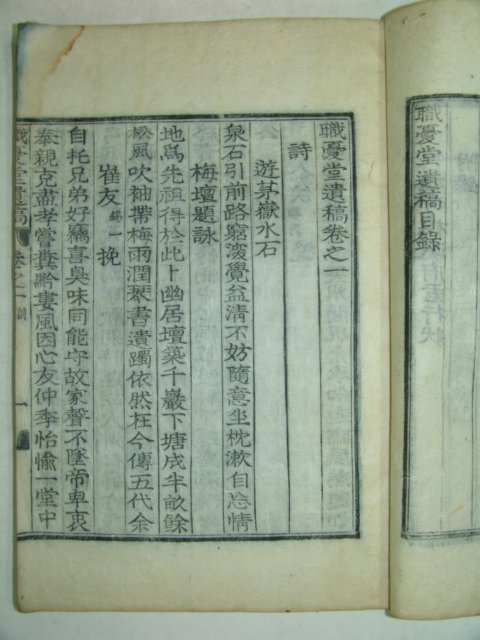 職憂堂遺稿目錄
職憂堂遺稿卷之一
詩
遊茅嶽水石
泉石引前路窮深覺益清不妨隨意坐枕漱自忘情
梅壇題詠
地爲先祖得於此卜幽居壇築千巖下塘成半畝餘
松風吹袖帶梅雨潤琴書遺躅依然在今傳五代余
崔友錫一挽
自托兄弟好竊喜臭味同能守故家聲不墜帝卑衷
奉親克盡孝嘗糞黔婁風因心友仲季怡愉一堂中
職憂堂遺稿 卷之一 詩 一